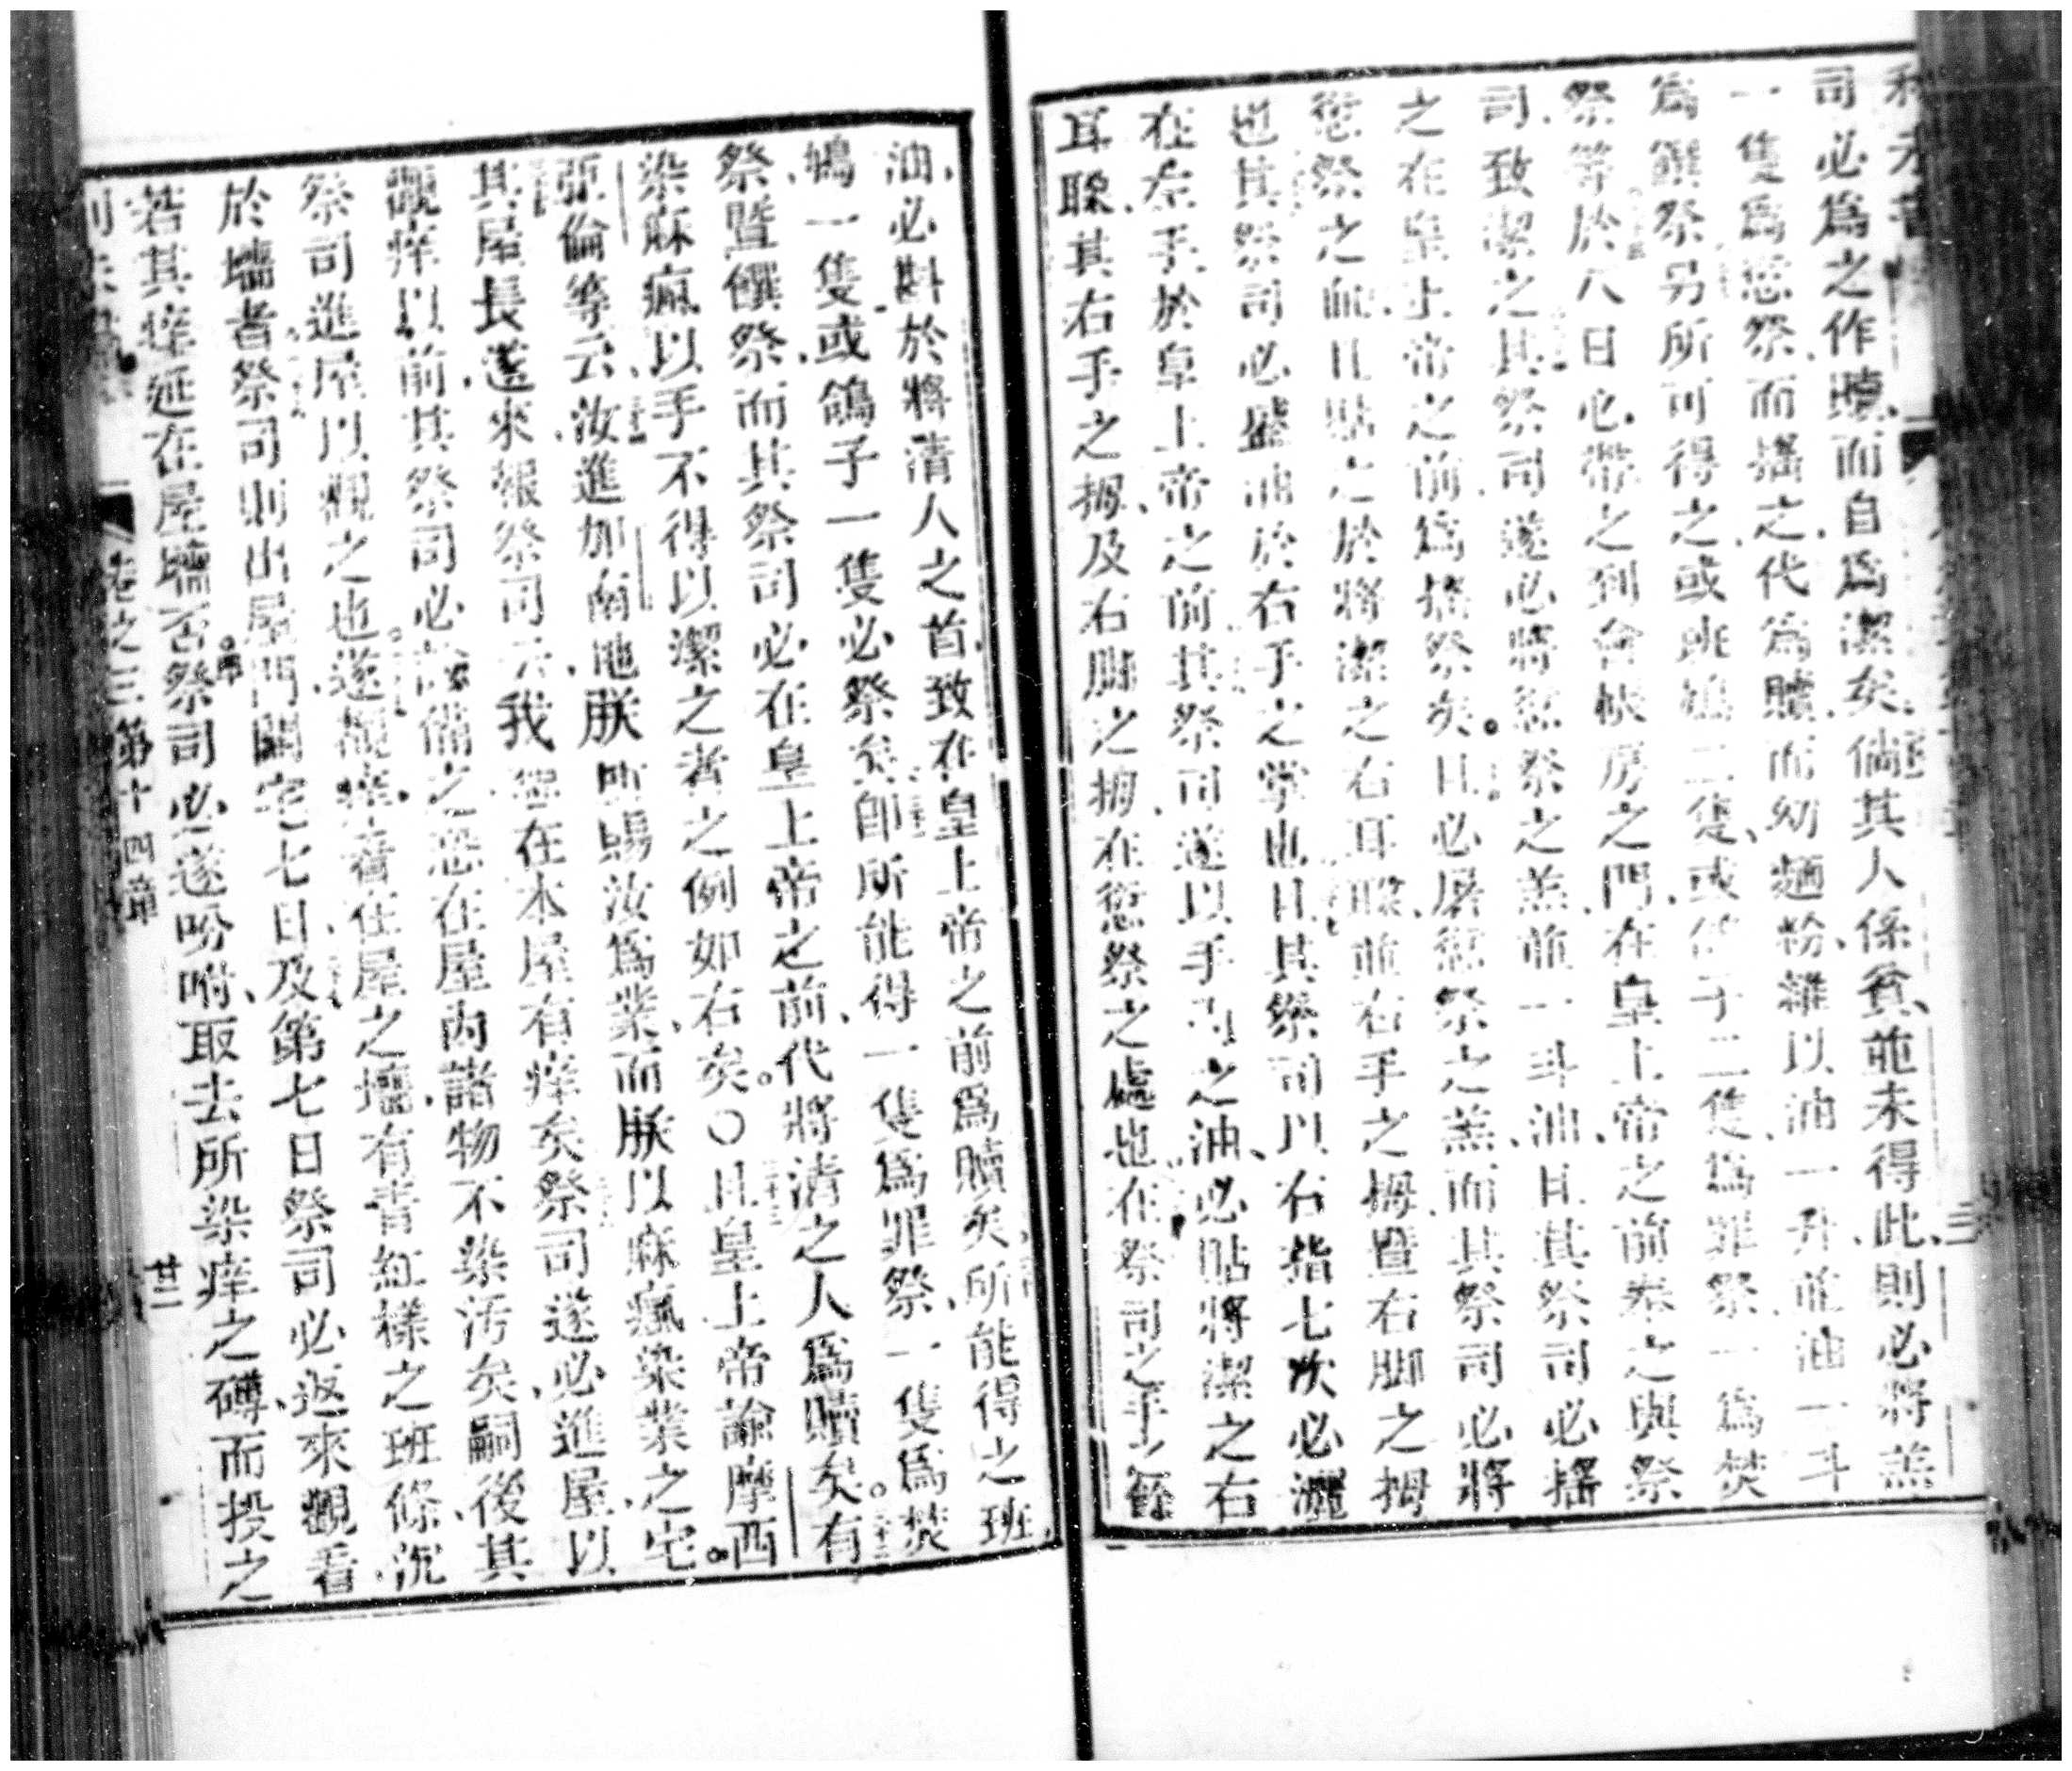 司必為之作贖而自為潔矣倘其人係貧並未得此則必將羔
一隻為愆祭而搖之代為贖而幼麵粉雜以油一升並油一斗
為饌祭另所可得之或班鳩二隻或鴿子二隻為罪祭一為焚
祭等於八日必帶之到會帳房之門在皇上帝之前奉之與祭
司致潔之其祭司遂必將愆祭之羔並一斗油且其祭司必搖
之在皇上帝之前為搖祭矣且必屠愆祭之羔而其祭司必將
愆祭之血且貼之於將潔之右耳聜並右手之拇暨右脚之拇
也其祭司必盛油於右手之掌也且其祭司以右指七次必灑
在左手於皇上帝之前其祭司遂以手內之油必貼將潔之右
耳聜其右手之拇及右脚之拇在愆祭之處也在祭司之手之餘
油必斟於將清人之首致在皇上帝之前為贖矣所能得之班
鳩一隻或鴿子一隻必祭矣即所能得一隻為罪祭一隻為焚
祭暨饌祭而其祭司必在皇上帝之前代將清之人為贖矣有
染痳瘋以手不得以潔之者之例如右矣〇且皇上帝諭摩西
亞倫等云汝進加南地朕所賜汝為業而朕以痳瘋染業之宅
其屋長遂來報祭司云我在本屋有痒矣祭司遂必進屋以
觀痒以前其祭司必備之恐在屋內諸物不染汚矣嗣後其
祭司進屋以觀之也遂觀痒着在屋之墻有青紅樣之班條沉
於墻者祭司則出屋門關宅七日及第七日祭司必返來觀看
若其痒延在屋墻否祭司必遂吩咐取去所染痒之磚而投之
卷之三第十四章
廿二